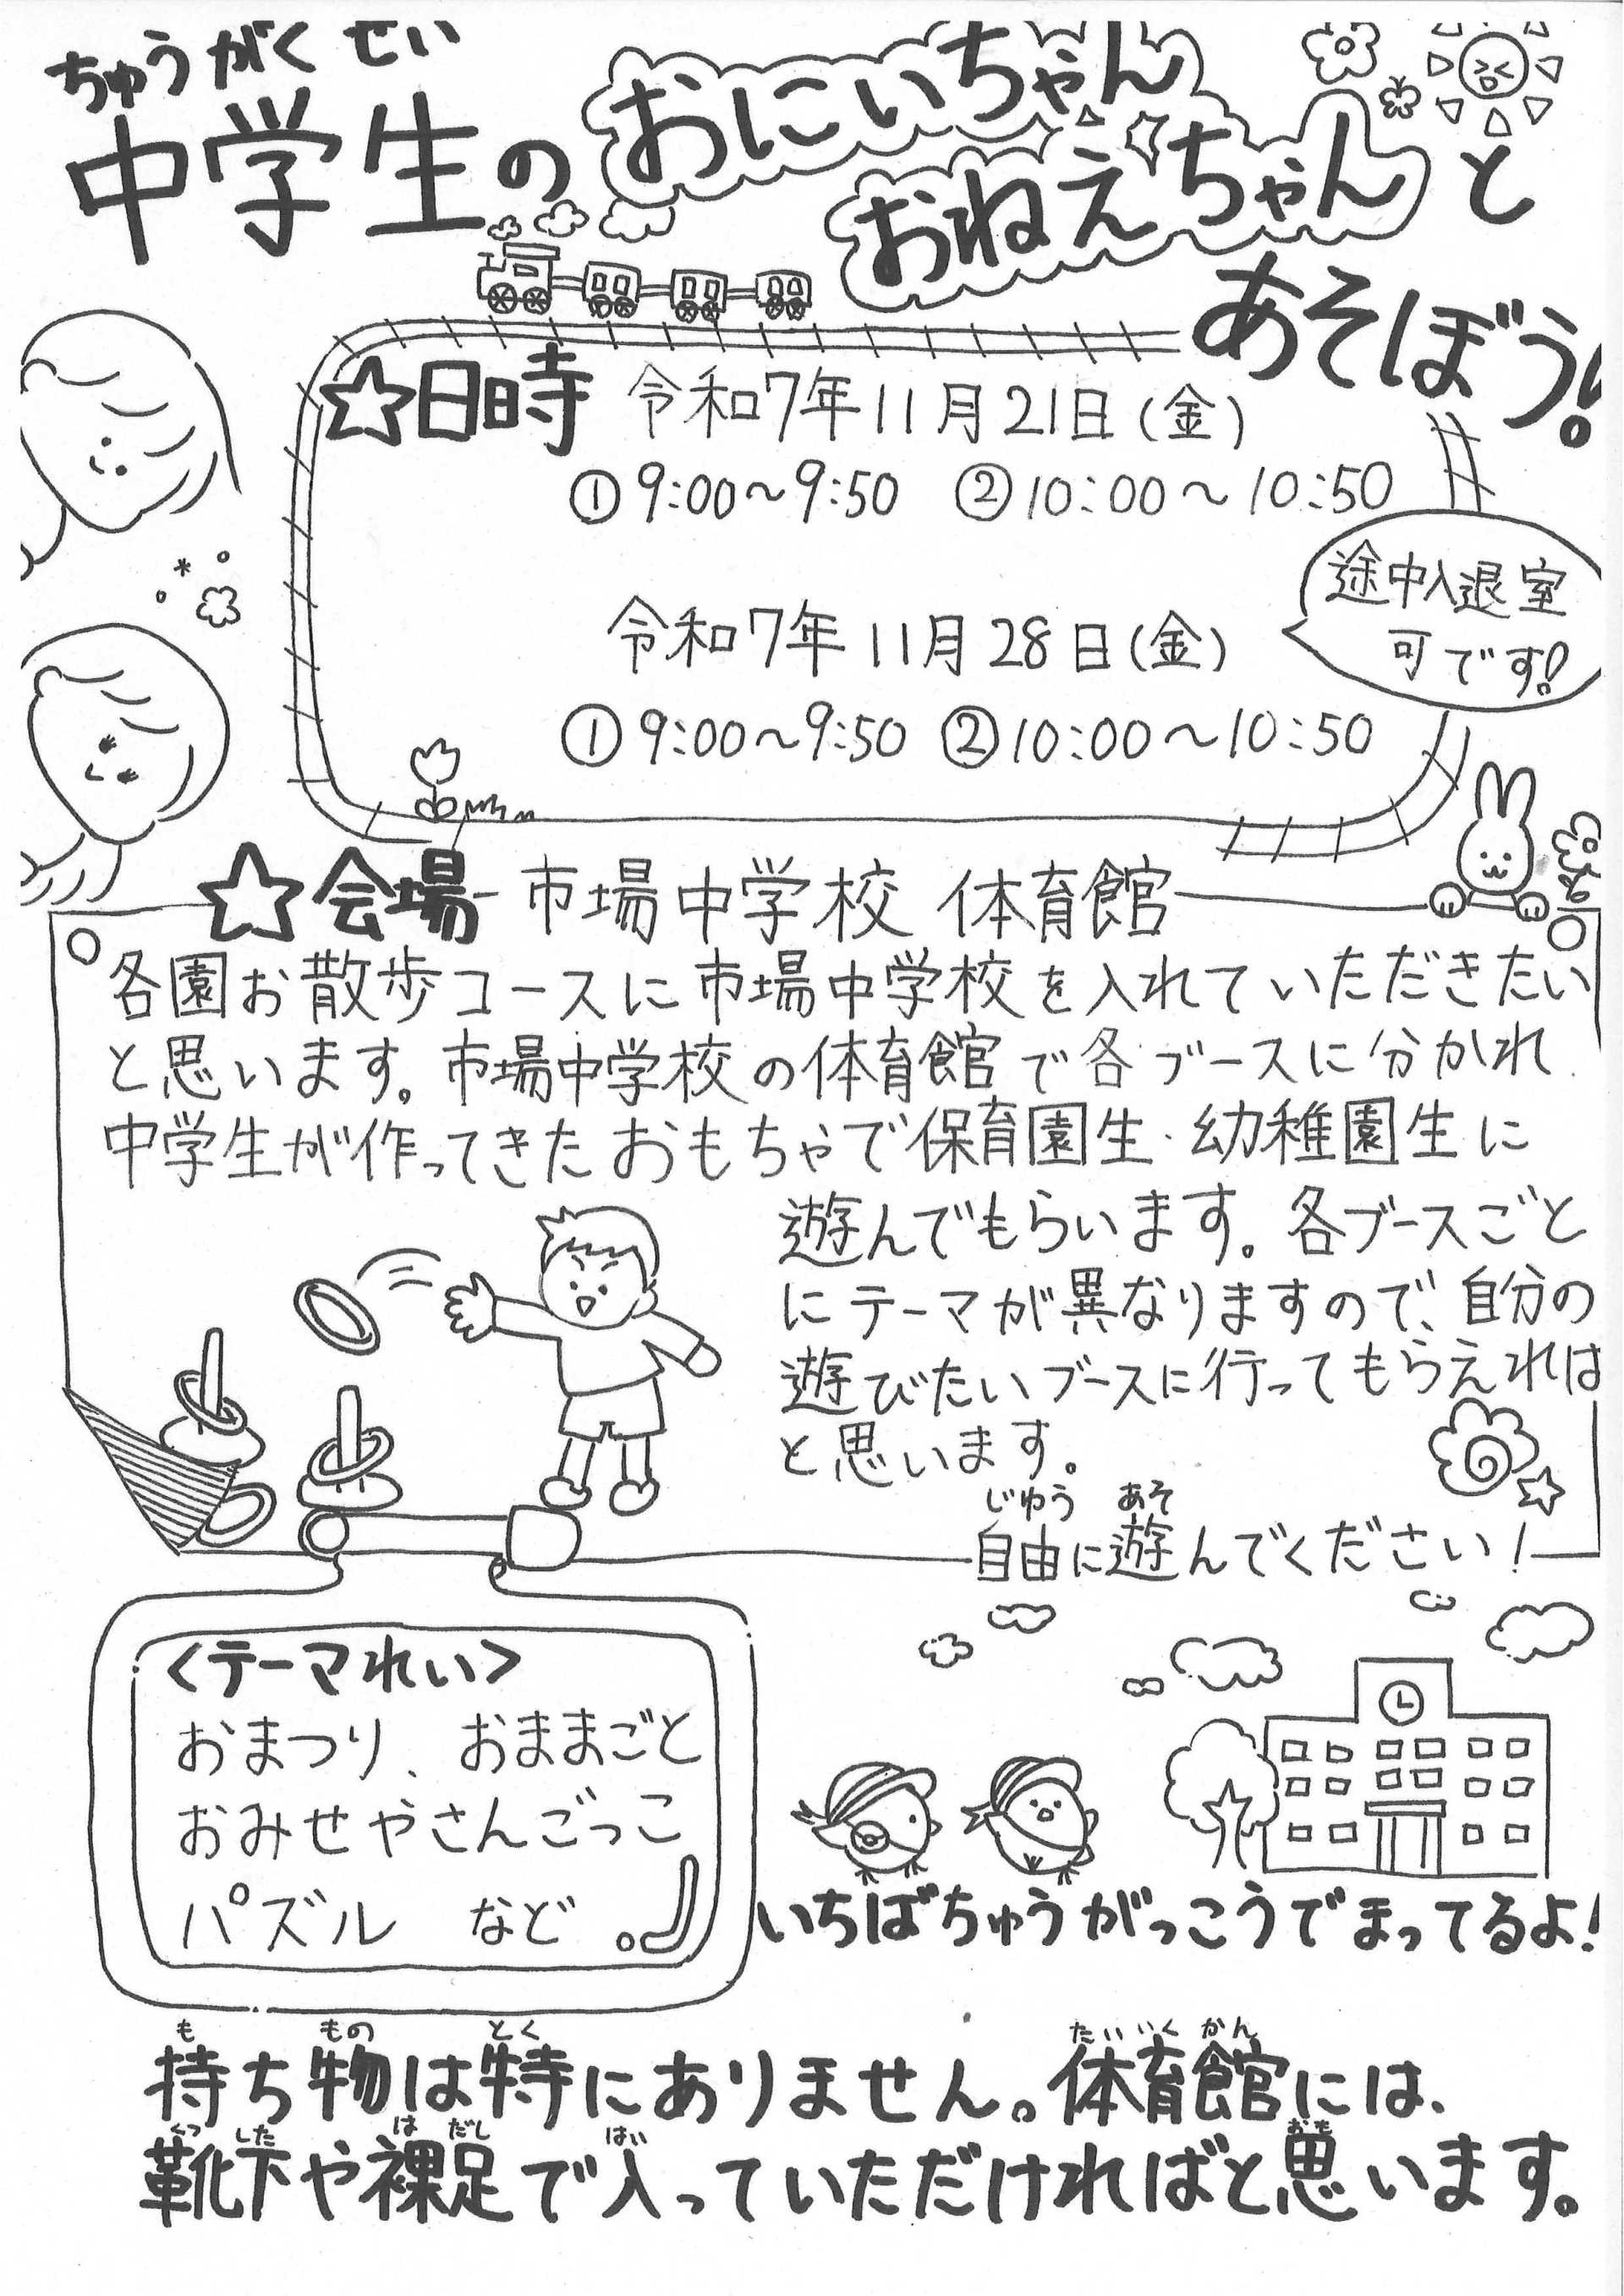 ちゅうがくせい
中学生のおにいちゃん
おねえちゃんと
あそぼう!
☆日時 令和7年11月21日(金)
①9:00～9:50 ②10:00～10:50
途中入退室
可です!
令和7年11月28日(金)
①9:00～9:50 ②10:00～10:50
☆会場 市場中学校 体育館
各園お散歩コースに市場中学校を入れていただきたい
と思います。市場中学校の体育館で各ブースに分かれ
中学生が作ってきたおもちゃで保育園生・幼稚園生に
遊んでもらいます。各ブースごと
にテーマが異なりますので、自分の
遊びたいブースに行ってもらえれば
と思います。
じゆう あそ
自由に遊んでください!
<テーマれい>
おまつり、おままごと
おみせやさんごっこ
パズル など
いちばちゅうがっこうでまってるよ!
も もの とく たいいくかん
持ち物は特にありません。体育館には、
くつ した は だし はい おも
靴下や裸足で入っていただければと思います。